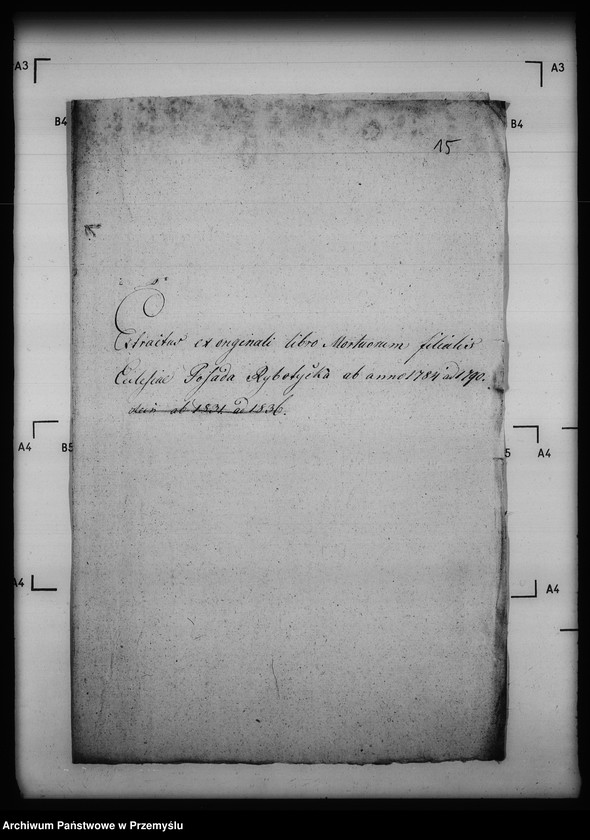 A3 A3
B4 B4
15
Extractus ex originali libro Mortuorum filialis
Eclesiae Posada Rybotyčka ab anno 1784 ad 1790.
dein ab 1831 ad 1836.
A4 B5 5 A4
A4 A4
Archiwum Państwowe w Przemyślu